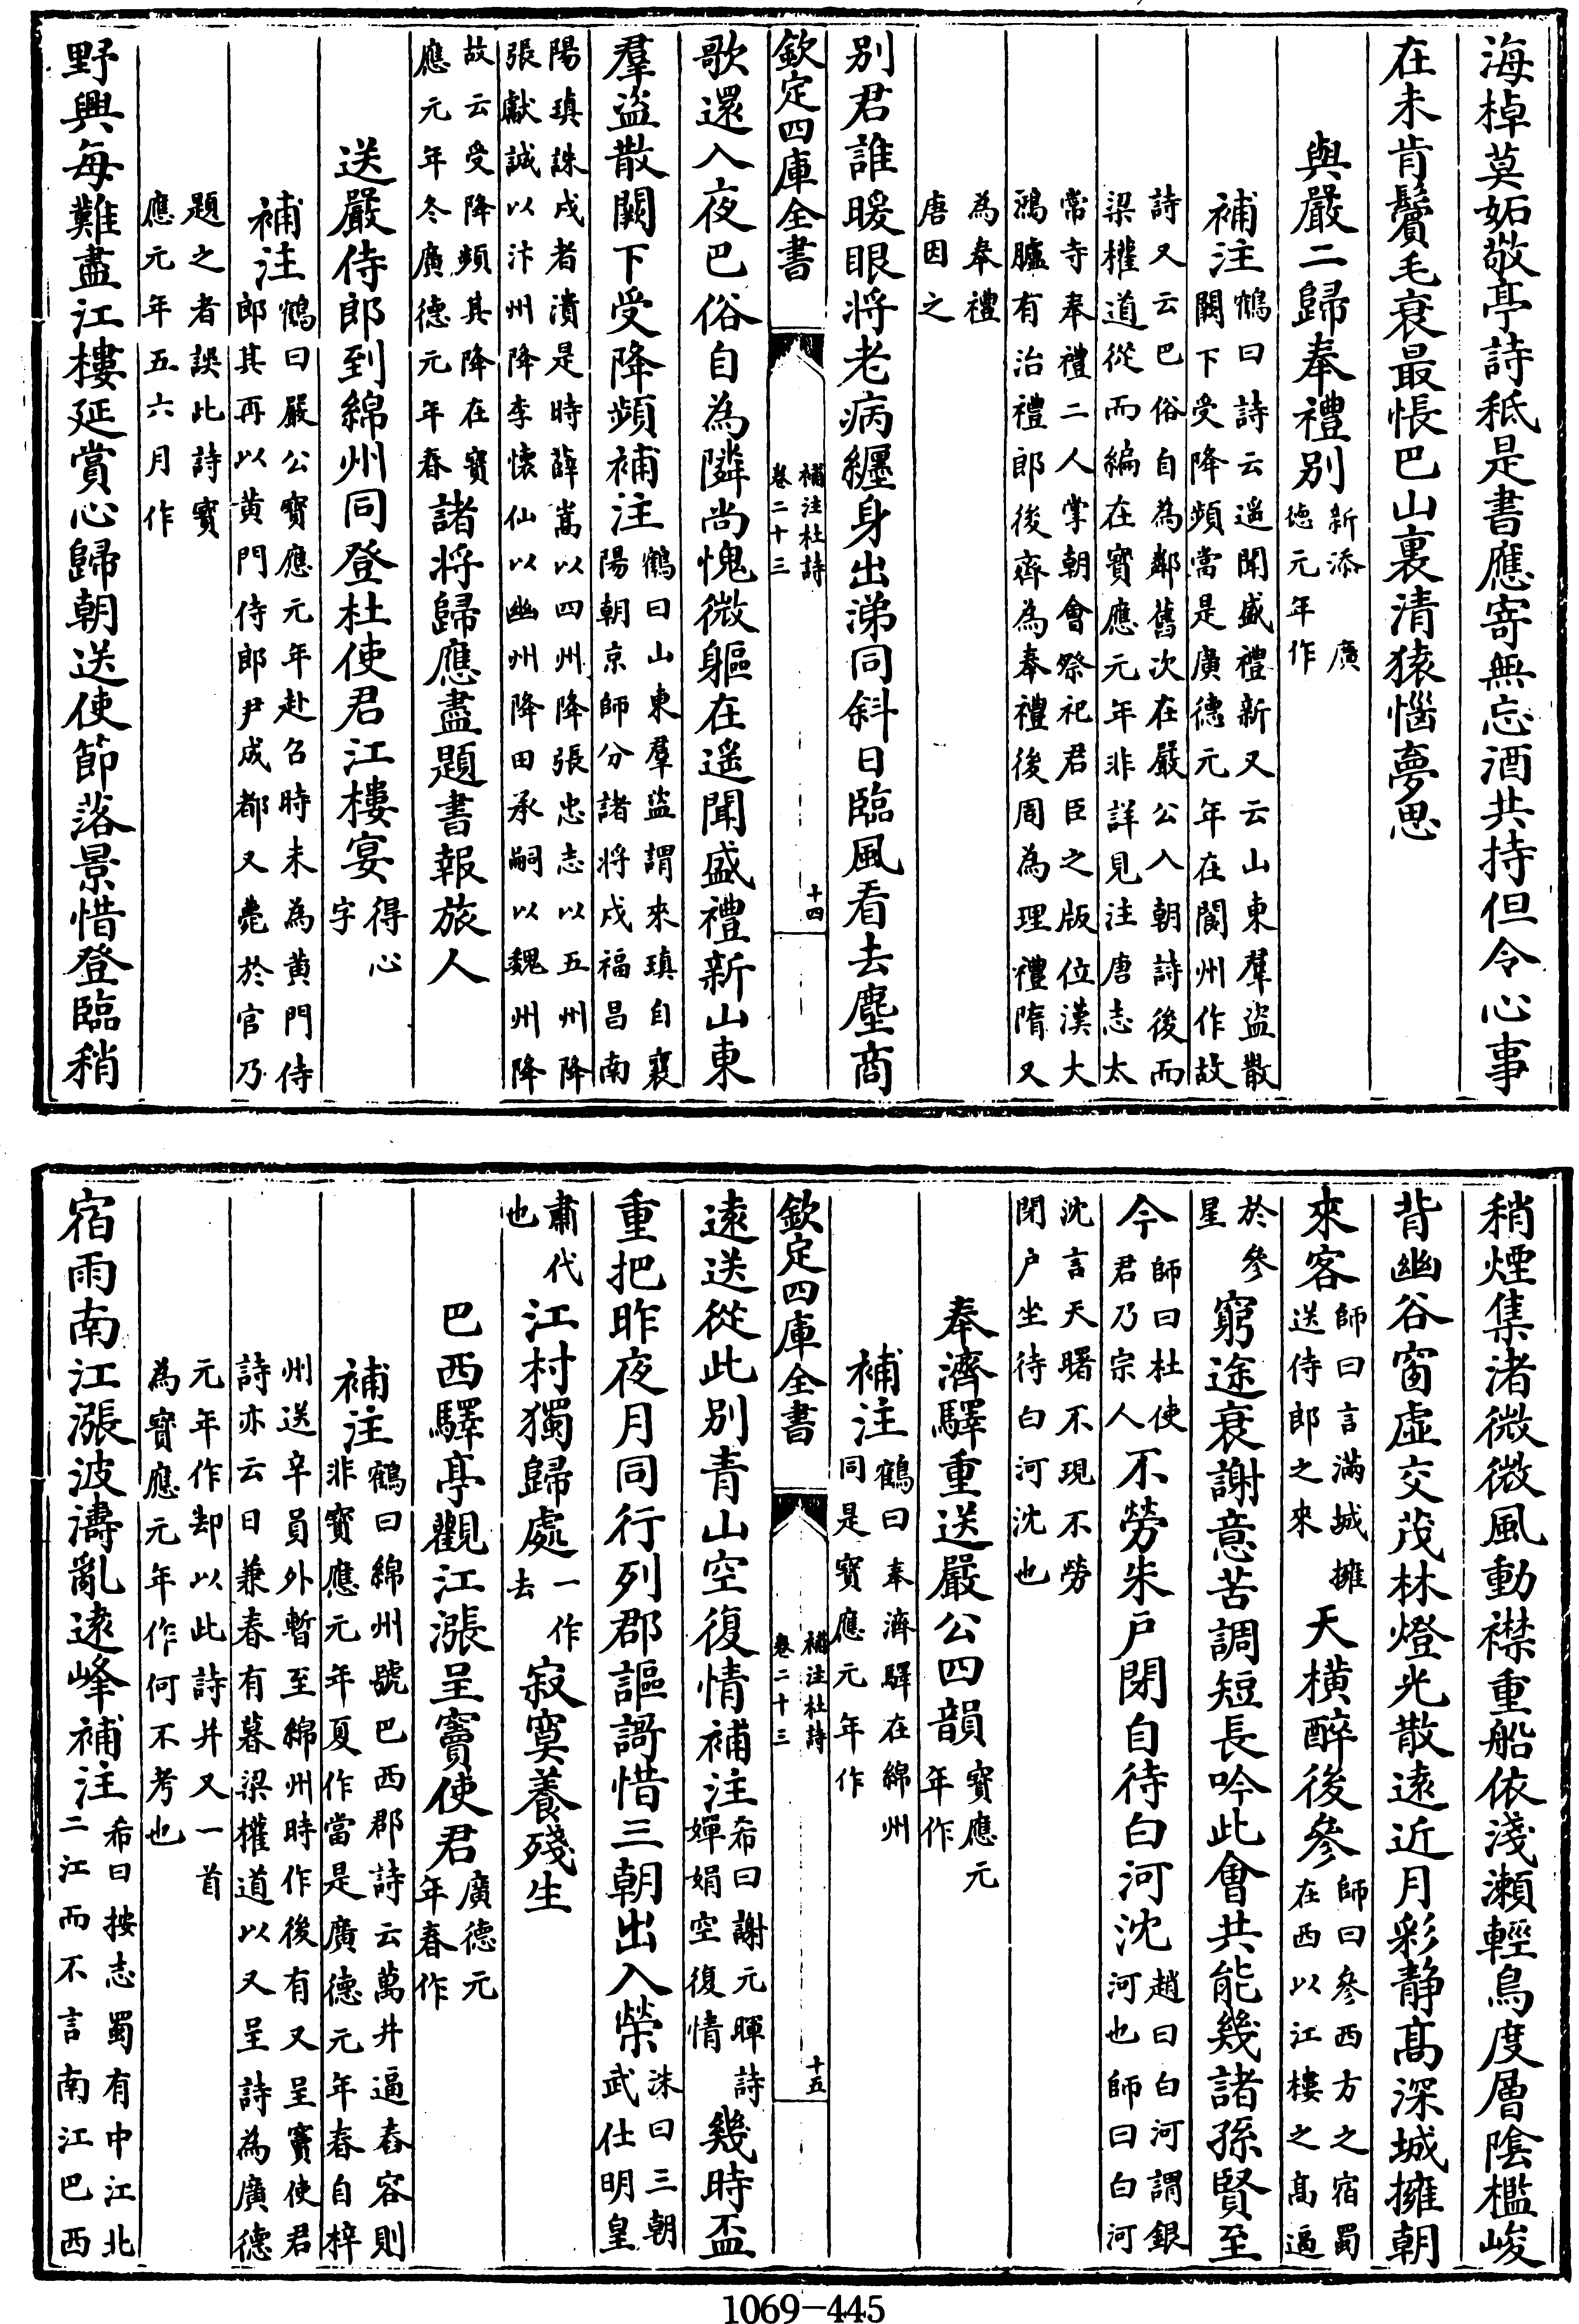 海棹莫妬敬亭詩秪是書應寄無忘酒共持但令心事
在未肯鬢毛衰最悵巴山裏清猿惱夢思
與嚴二歸奉禮别新添 廣
德元年作
補注鶴曰詩云遥聞盛禮新又云山東羣盜散
闕下受降頻當是廣德元年在閬州作故
詩又云巴俗自為鄰舊次在嚴公入朝詩後而
梁權道從而編在寳應元年非詳見注唐志太
常寺奉禮二人掌朝會祭祀君臣之版位漢大
鴻臚有治禮郎後齊為奉禮後周為理禮隋又
為奉禮
唐因之
别君誰暖眼將老病纒身出涕同斜日臨風看去塵商
欽定四庫全書
補注杜詩
卷二十三
十四
歌還入夜巴俗自為隣尚愧微軀在遥聞盛禮新山東
羣盜散闕下受降頻補注鶴曰山東羣盜謂來瑱自襄
陽朝京師分諸將戍福昌南
陽瑱誅戍者潰是時薛嵩以四州降張忠志以五州降
張獻誠以汴州降李懷仙以幽州降田承嗣以魏州降
故云受降頻其降在寳
應元年冬廣德元年春諸將歸應盡題書報旅人
送嚴侍郎到綿州同登杜使君江樓宴得心
字
補注鶴曰嚴公寳應元年赴召時未為黄門侍
郎其再以黄門侍郎尹成都又薨於官乃
題之者誤此詩寳
應元年五六月作
野興每難盡江樓延賞心歸朝送使節落景惜登臨稍
稍煙集渚微微風動襟重船依淺瀨輕鳥度層陰檻峻
背幽谷窗虛交茂林燈光散遠近月彩静髙深城擁朝
來客師曰言滿城擁
送侍郎之來天橫醉後參師曰參西方之宿蜀
在西以江樓之髙逼
於參
星窮途衰謝意苦調短長吟此㑹共能幾諸孫賢至
今師曰杜使
君乃宗人不勞朱戸閉自待白河沈趙曰白河謂銀
河也師曰白河
沈言天曙不現不勞
閉户坐待白河沈也
奉濟驛重送嚴公四韻寳應元
年作
補注鶴曰奉濟驛在綿州
同是寳應元年作
欽定四庫全書
補注杜詩
卷二十三
十五
遠送從此别青山空復情補注希曰謝元暉詩
嬋娟空復情幾時盃
重把昨夜月同行列郡謳謌惜三朝出入榮洙曰三朝
武仕明皇
肅代
也江村獨歸處一作
去寂寞養殘生
巴西驛亭觀江漲呈竇使君廣德元
年春作
補注鶴曰綿州號巴西郡詩云萬井逼舂容則
非寳應元年夏作當是廣德元年春自梓
州送辛員外暫至綿州時作後有又呈竇使君
詩亦云日兼春有暮梁權道以又呈詩為廣德
元年作却以此詩并又一首
為寳應元年作何不考也
宿雨南江漲波濤亂逺峰補注希曰按志蜀有中江北
二江而不言南江巴西
1069-445